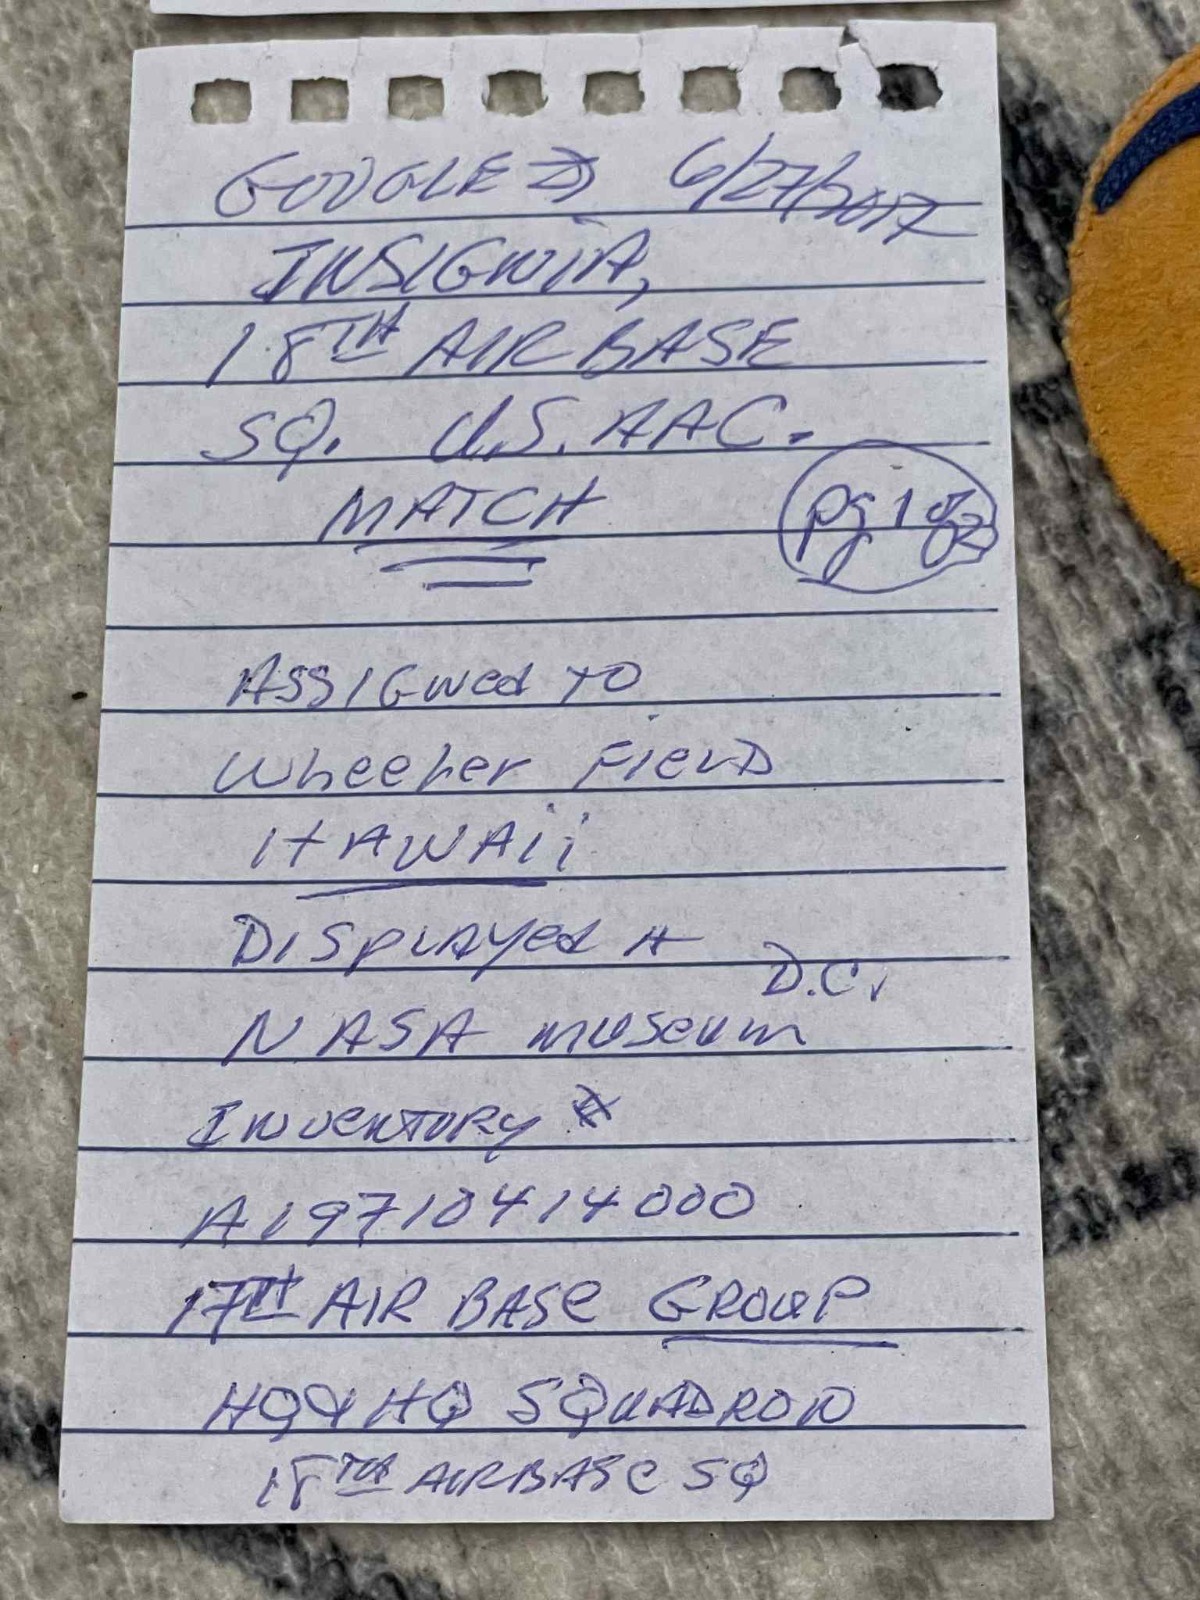 GOOGLE → 6/27/2017
INSIGNIA,
18TH AIR BASE
SQ. U.S. AAC.
MATCH
pg 1 of 2
Assigned to
Wheeler Field
HAWAii
Displayed A
D.C.
NASA museum
Inventory #
A19710414000
17TH AIR BASE GROUP
HQ & HQ SQUADRON
18TH AIRBASE SQ